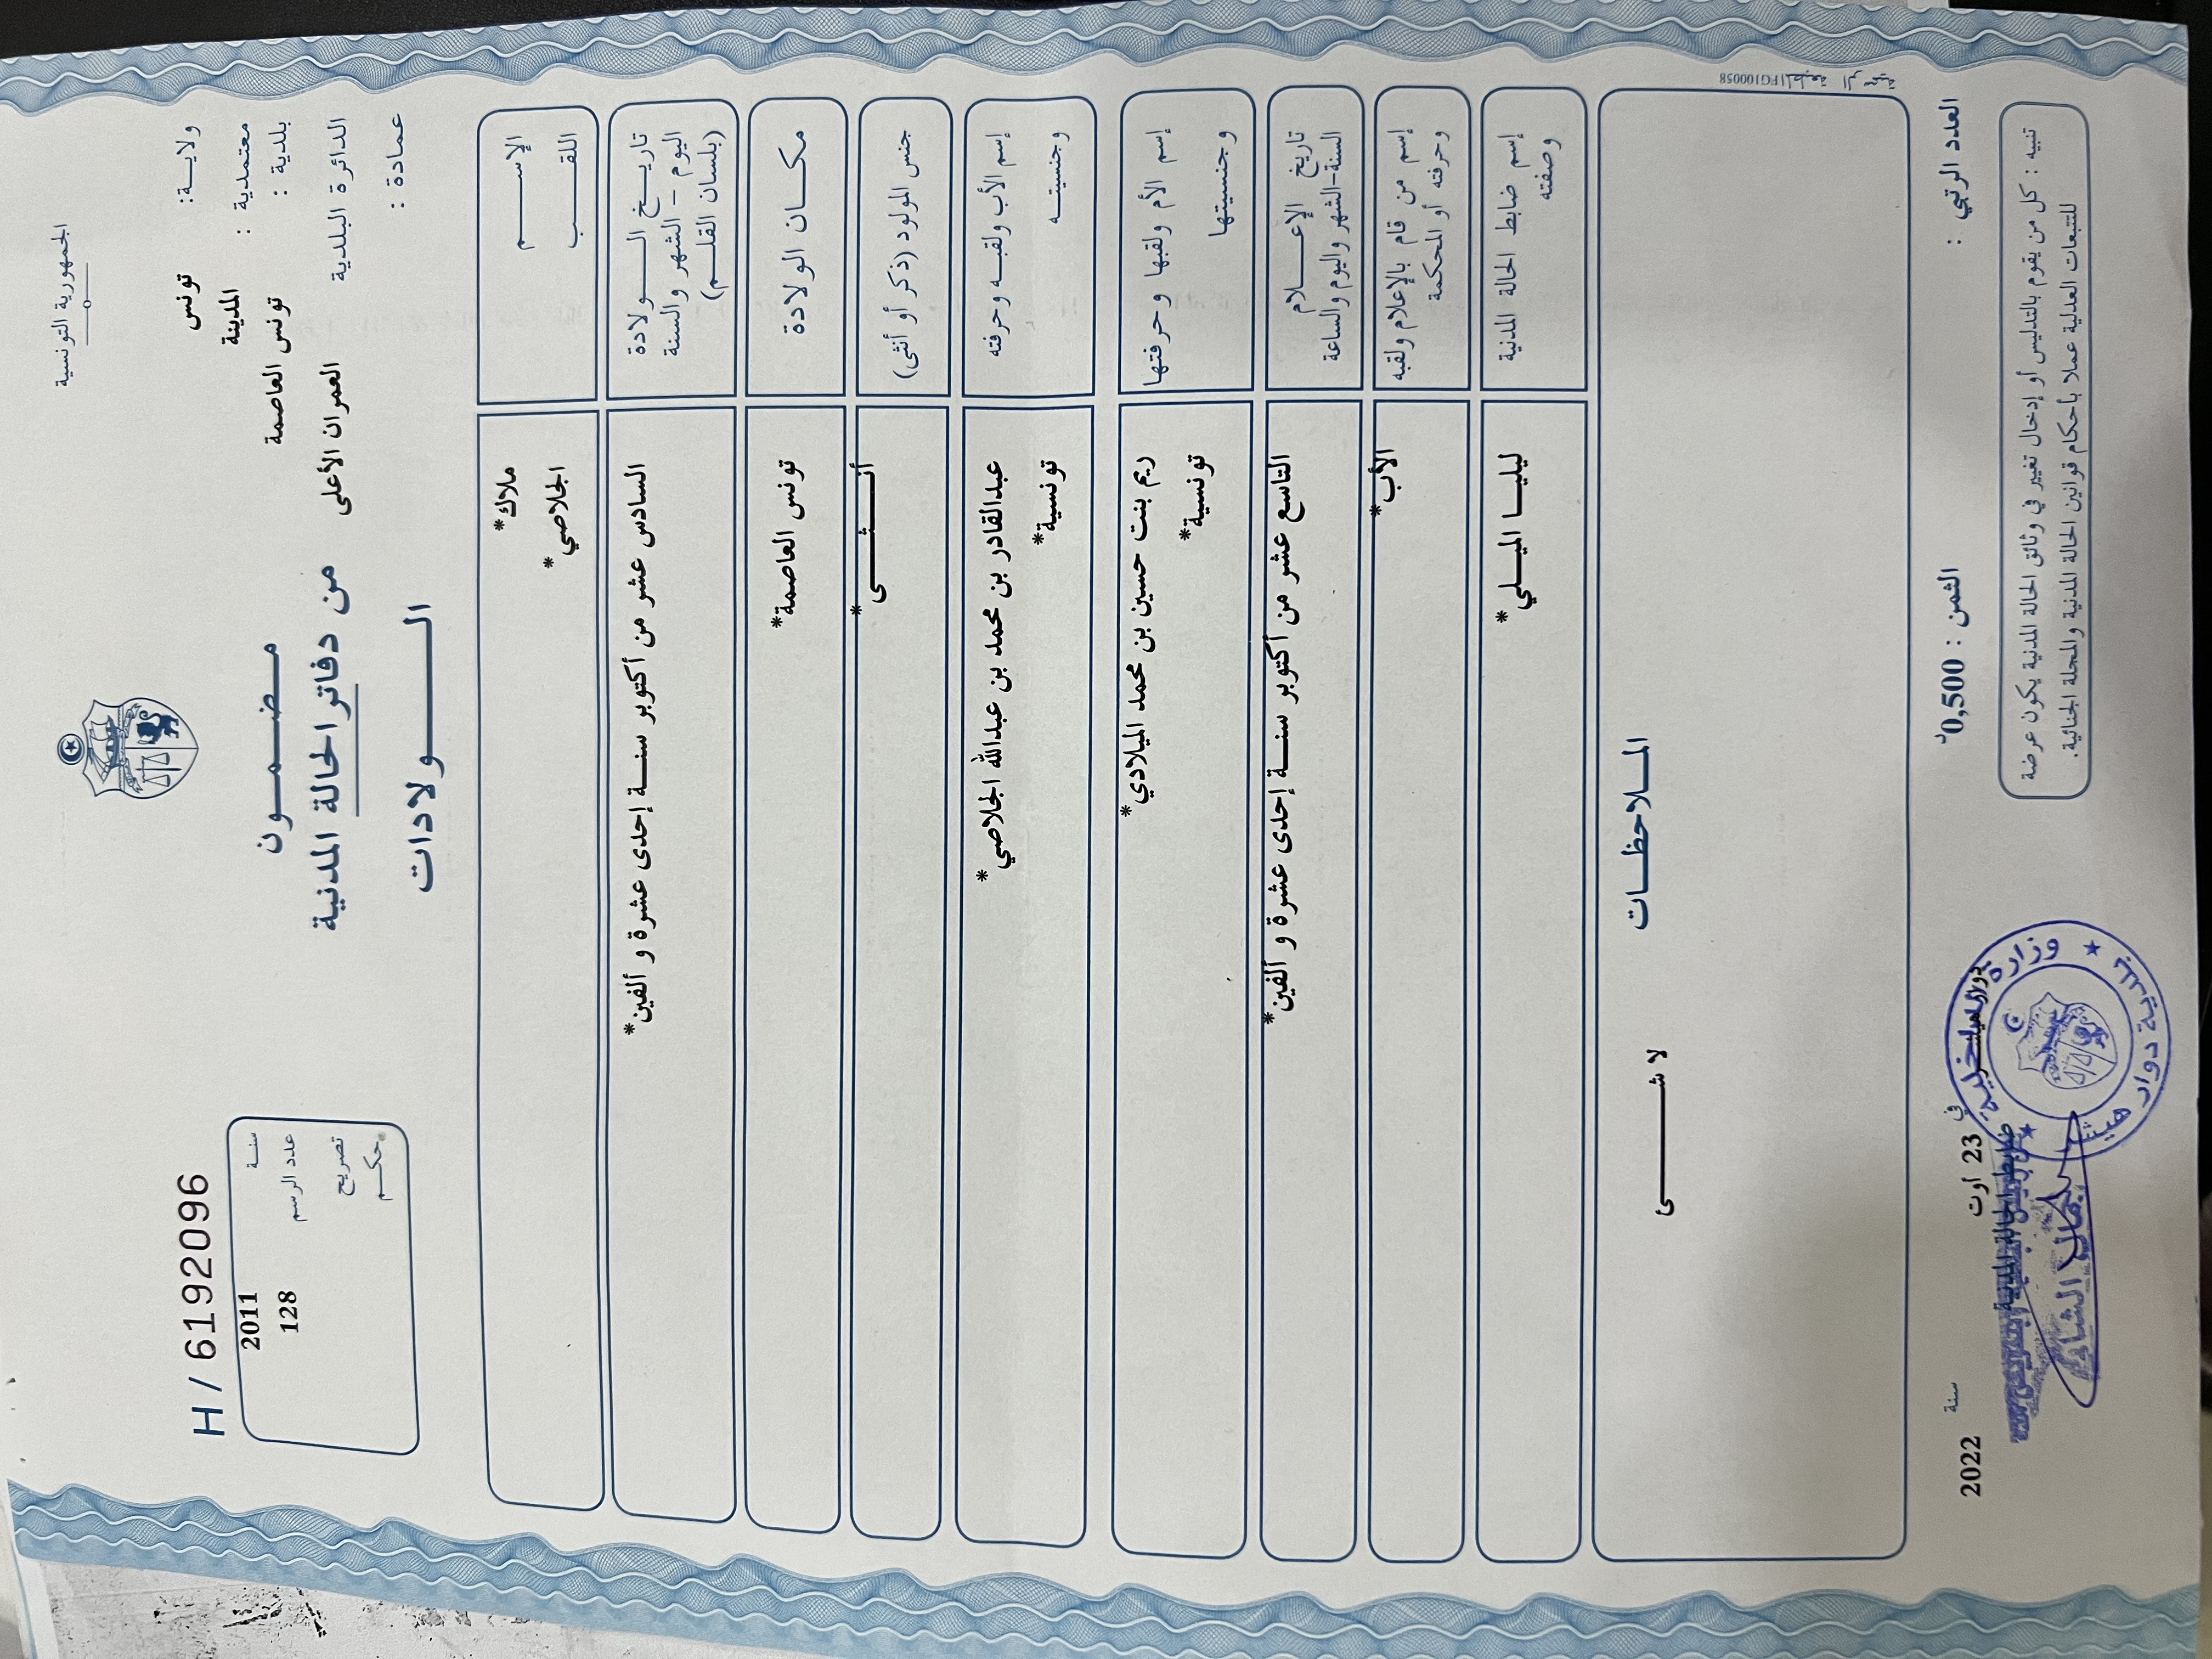 الجمهورية التونسية
ولاية: تونس
معتمدية : المدينة
بلدية : تونس العاصمة
الدائرة البلدية العمران الأعلى
عمادة :
مضمون
من دفاتر الحالة المدنية
الولادات
H / 6192096
سنة 2011
عدد الرسم 128
تصريح
حكم
الإسم ملاك*
اللقب الجلاصي*
تاريخ الولادة
اليوم - الشهر والسنة
(بلسان القلم)
السادس عشر من أكتوبر سنة إحدى عشرة و ألفين*
مكان الولادة تونس العاصمة*
جنس المولود (ذكر أو أنثى) أنثى*
إسم الأب ولقبه وحرفته عبدالقادر بن محمد بن عبدالله الجلاصي*
وجنسيته تونسية*
إسم الأم ولقبها وحرفتها ريم بنت حسين بن محمد الميلادي*
وجنسيتها تونسية*
تاريخ الإعلام
السنة-الشهر واليوم والساعة
التاسع عشر من أكتوبر سنة إحدى عشرة و ألفين*
إسم من قام بالإعلام ولقبه
وحرفته أو المحكمة
الأب*
إسم ضابط الحالة المدنية
وصفته
ليليا الميلي*
الملاحظات
لا شئ
المطبعة الرسمية FG100058
العدد الرتبي :
الثمن : 0,500د
في 23 اوت سنة 2022
تنبيه : كل من يقوم بالتدليس أو إدخال تغيير في وثائق الحالة المدنية يكون عرضة
للتتبعات العدلية عملا بأحكام قوانين الحالة المدنية والمجلة الجنائية.
وزارة الداخلية
بلدية دوار هيشر
ضابط الحالة المدنية